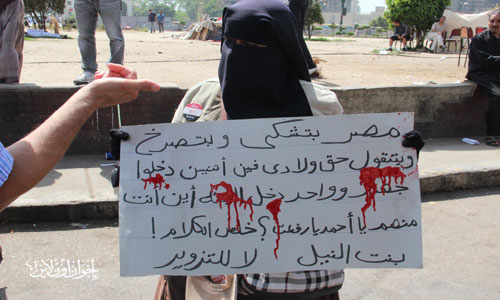 مصر بتشكى وبتصرخ
وبتقول حق ولادى فين أتنين دخلوا
وواحد دخل أين أنت
منهم يا أحمد يا رفعت؟ خلص الكلام!
بنت النيل لا للتزوير
إخوان أون لاين